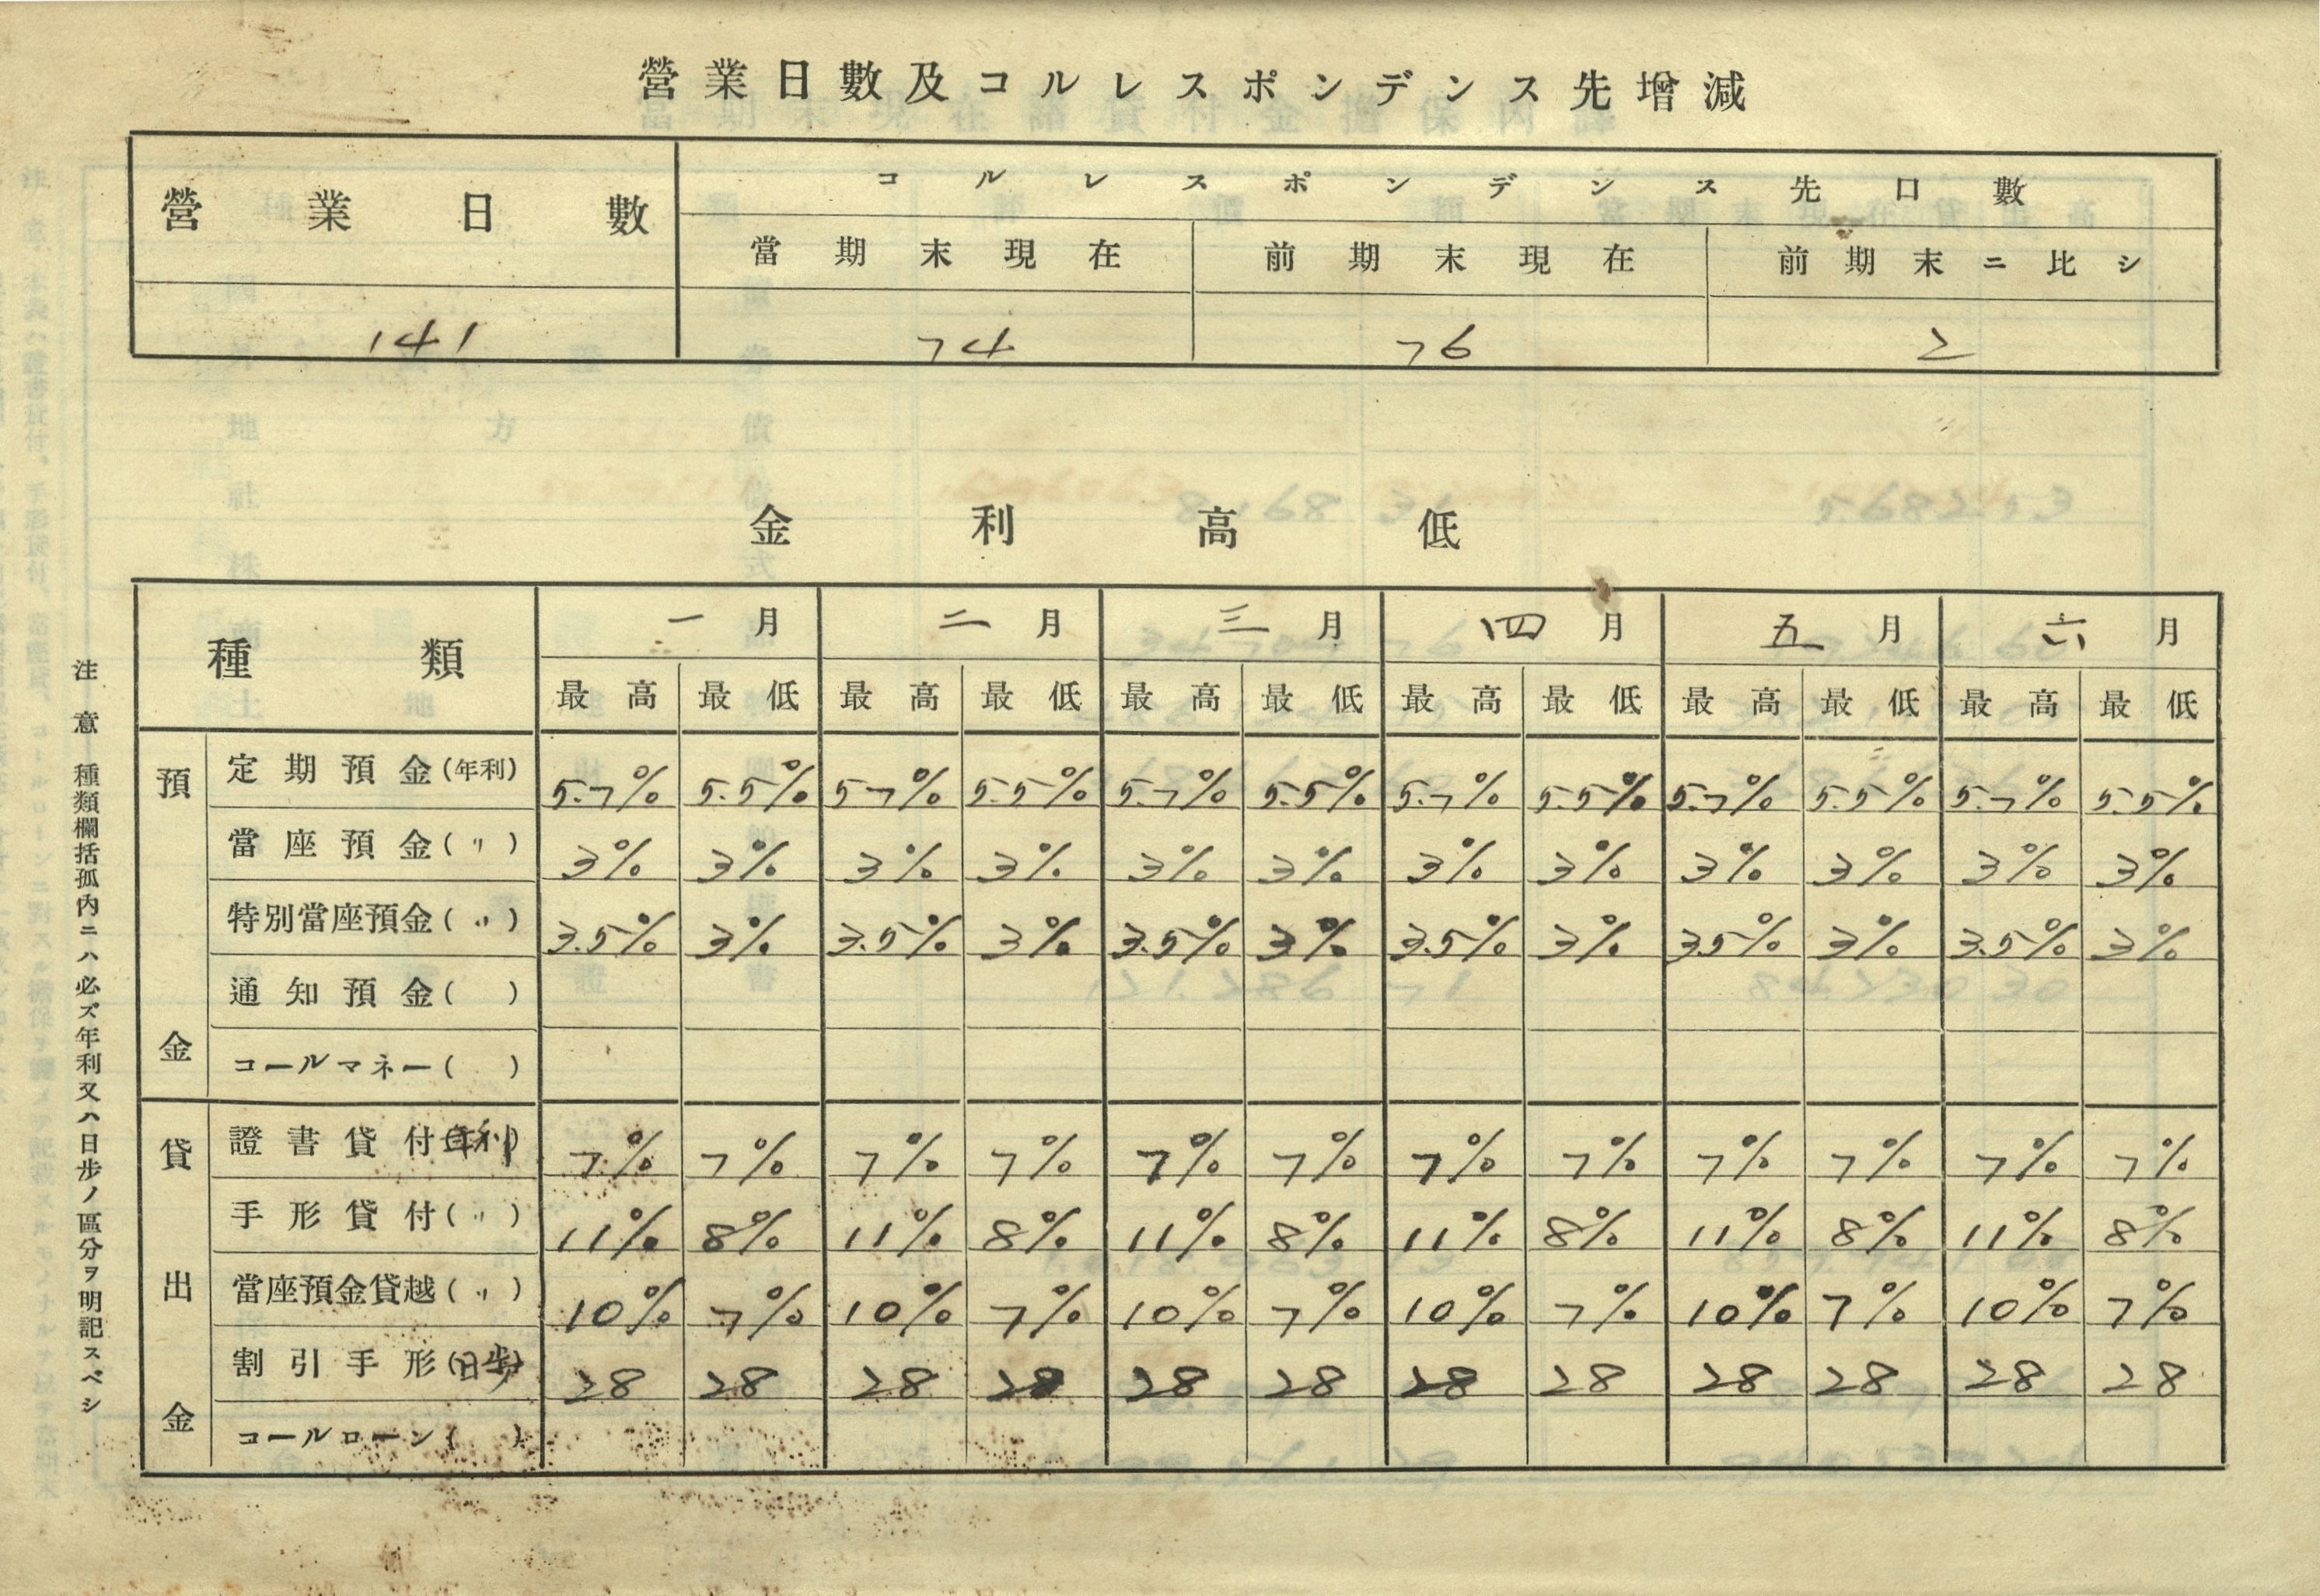 營業日數及コルレスポンデンス先增減
營業日數
コルレスポンデンス先口數
當期末現在 前期末現在 前期末ニ比シ
141 74 76 2
金利高低
種類 一月 二月 三月 四月 五月 六月
最高 最低 最高 最低 最高 最低 最高 最低 最高 最低 最高 最低
預金
定期預金(年利) 5.7% 5.5% 5.7% 5.5% 5.7% 5.5% 5.7% 5.5% 5.7% 5.5% 5.7% 5.5%
當座預金(〃) 3% 3% 3% 3% 3% 3% 3% 3% 3% 3% 3% 3%
特別當座預金(〃) 3.5% 3% 3.5% 3% 3.5% 3% 3.5% 3% 3.5% 3% 3.5% 3%
通知預金( )
コールマネー( )
貸出金
證書貸付(年利) 7% 7% 7% 7% 7% 7% 7% 7% 7% 7% 7% 7%
手形貸付(〃) 11% 8% 11% 8% 11% 8% 11% 8% 11% 8% 11% 8%
當座預金貸越(〃) 10% 7% 10% 7% 10% 7% 10% 7% 10% 7% 10% 7%
割引手形(日歩) 28 28 28 28 28 28 28 28 28 28 28 28
コールローン( )
注意 種類欄括孤內ニハ必ズ年利又ハ日步ノ區分ヲ明記スベシ